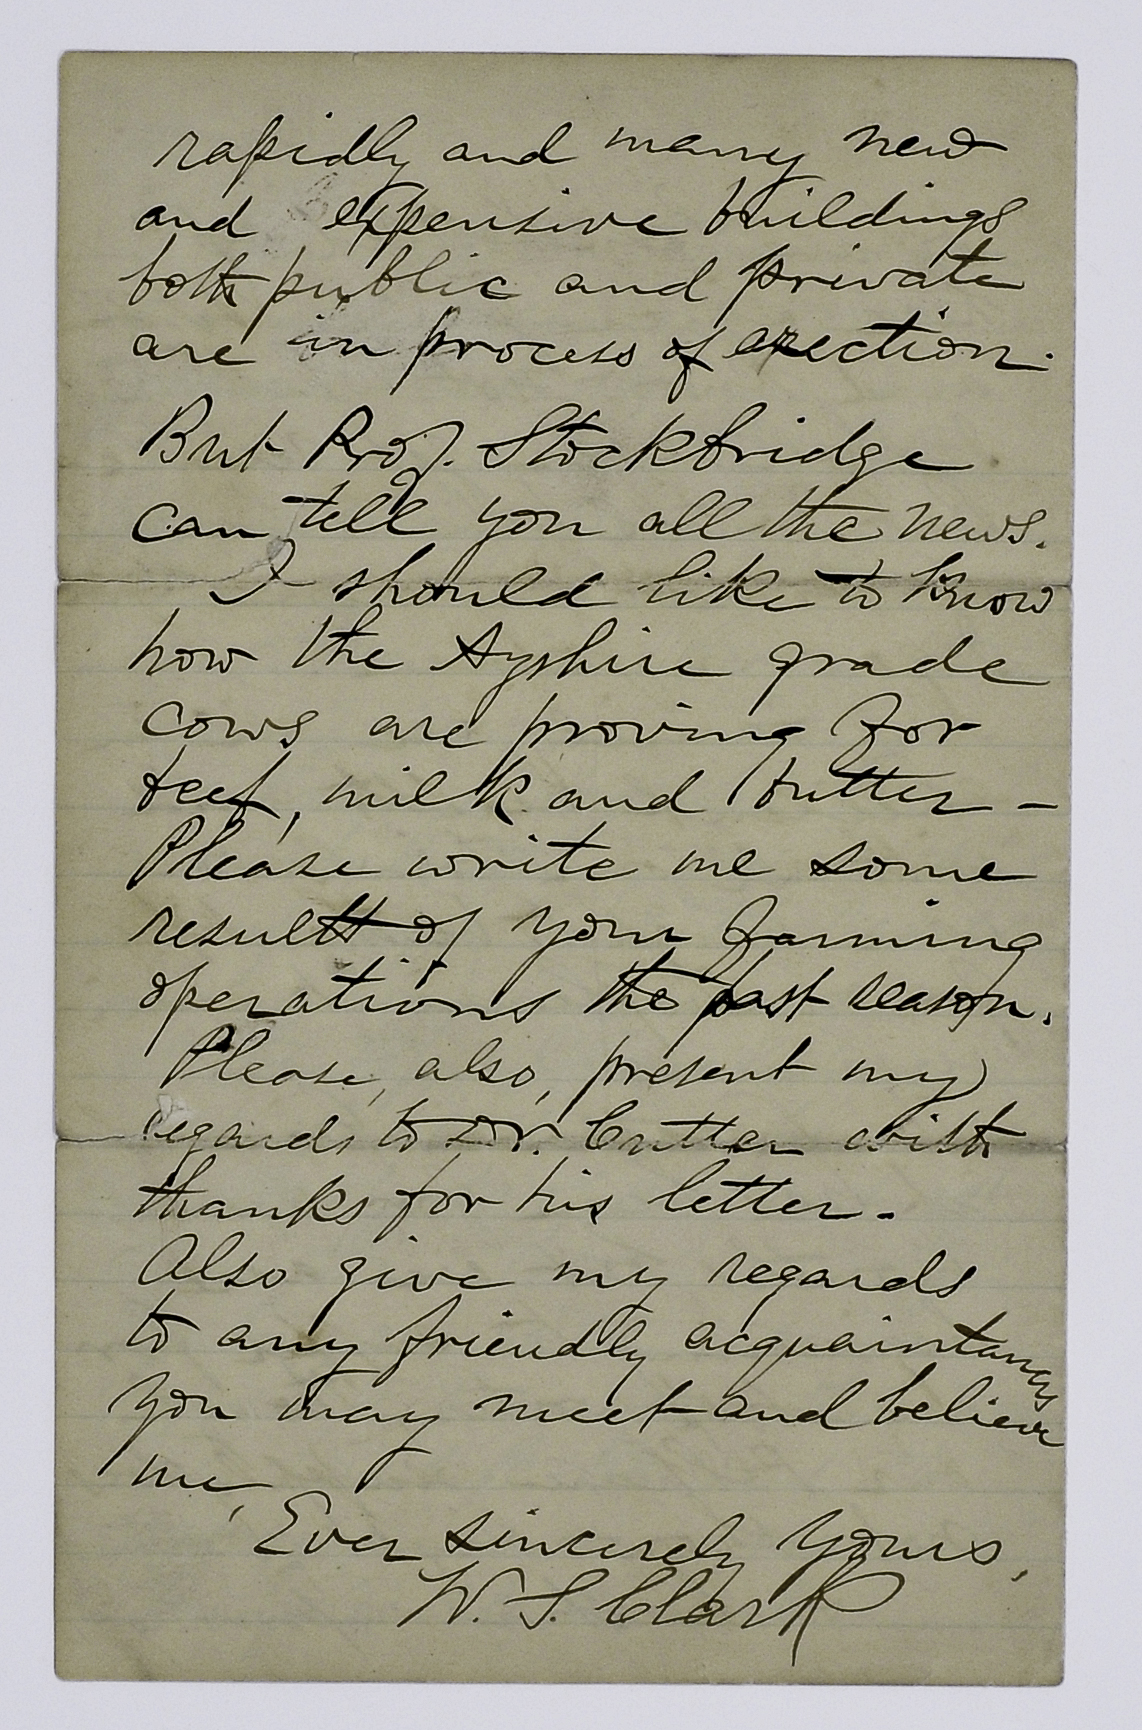 rapidly and many new
and expensive buildings
both public and private
are in process of erection.
But Prof. Stockbridge
can tell you all the news.
I should like to know
how the Ayshire grade
cows are proving for
beef, milk and butter –
Please write me some
results of your farming
operations the past season.
Please, also, present my
regards to Dr. Cutter with
thanks for his letter.
Also give my regards
to any friendly acquaintances
you may meet and believe
me,
Ever sincerely yours,
W. S. Clark